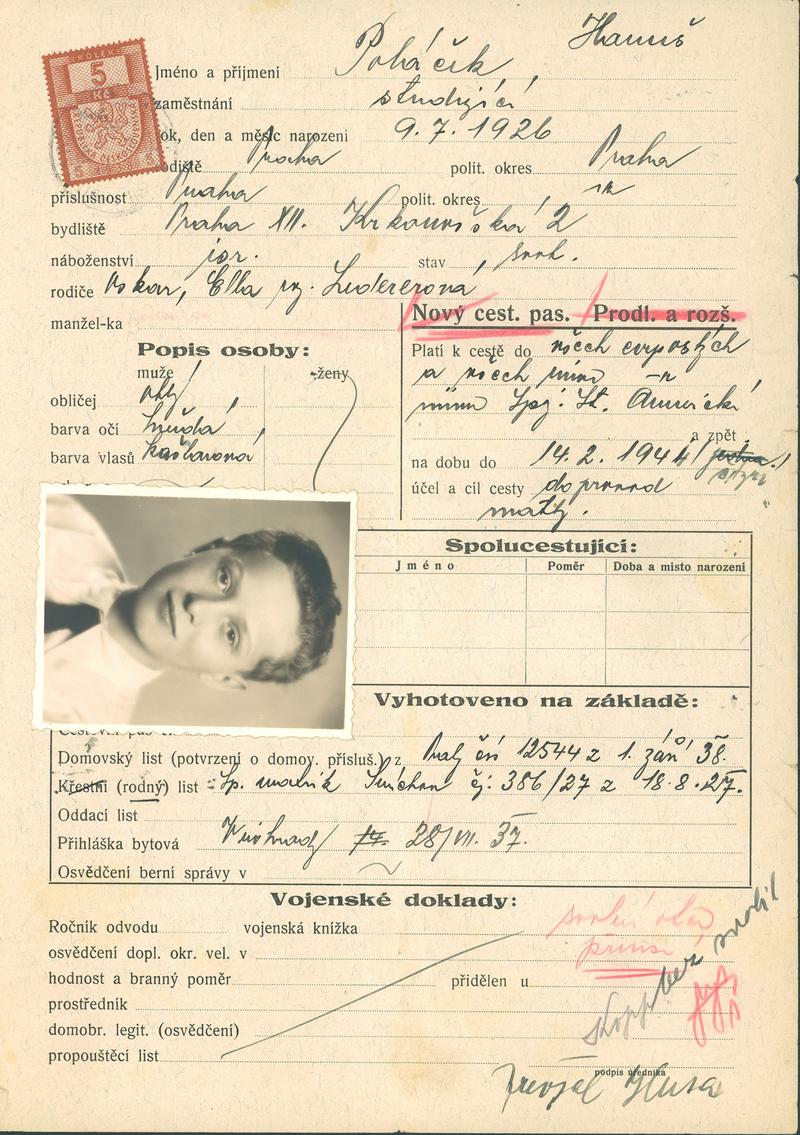 Hanuš
KOLEK
5
Kč
Jméno a příjmení Poláčik
zaměstnání studující
rok, den a měsíc narození 9.7.1926
rodiště Praha polit. okres Praha
příslušnost Praha polit. okres
bydliště Praha XII. Krkonošská 2
náboženství isr. stav svob.
rodiče Oskar, Ella roz. Ledererová
manžel-ka
Nový cest. pas. Prodl. a rozš.
Popis osoby:
muže -ženy
obličej
barva očí hnědá
barva vlasů kaštanová
Platí k cestě do všech evropských
a všech mimo
mimo Spoj. St.
a zpět
na dobu do 14.2.1944
účel a cíl cesty doprovod
matky.
Spolucestující:
Jméno Poměr Doba a misto narození
Vyhotoveno na základě:
Domovský list (potvrzení o domov. přísluš.) z čís 12544 z 1. září 38.
Křestní (rodný) list Sp. matrik Smíchov čj: 386/27 z 18.8.27.
Oddací list
Přihláška bytová Vinohrady 28/VII. 37.
Osvědčení berní správy v
Vojenské doklady:
Ročník odvodu vojenská knížka
osvědčení dopl. okr. vel. v
hodnost a branný poměr přidělen u
prostředník
domobr. legit. (osvědčení)
propouštěcí list
bez
podpis úředníka